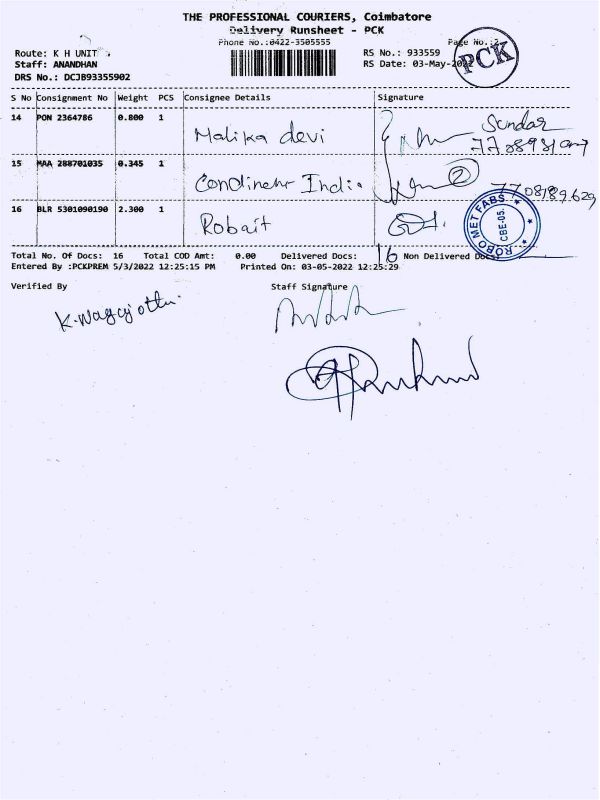 THE PROFESSIONAL COURIERS, Coimbatore
Delivery Runsheet - PCK
Phone No.:0422-3505555
Page No.:2
Route: K H UNIT
RS No.: 933559
Staff: ANANDHAN
RS Date: 03-May-2022
PCK
DRS No.: DCJB93355902
S No Consignment No Weight PCS Consignee Details Signature
14 PON 2364786 0.800 1 Malika devi Sundar
15 MAA 288701035 0.345 1 India 2 7708189629
16 BLR 5301090190 2.300 1 Robait
ROBO MET FABS CBE-05.
Total No. Of Docs: 16 Total COD Amt: 0.00 Delivered Docs: 16 Non Delivered Docs:
Entered By :PCKPREM 5/3/2022 12:25:15 PM Printed On: 03-05-2022 12:25:29
Verified By Staff Signature